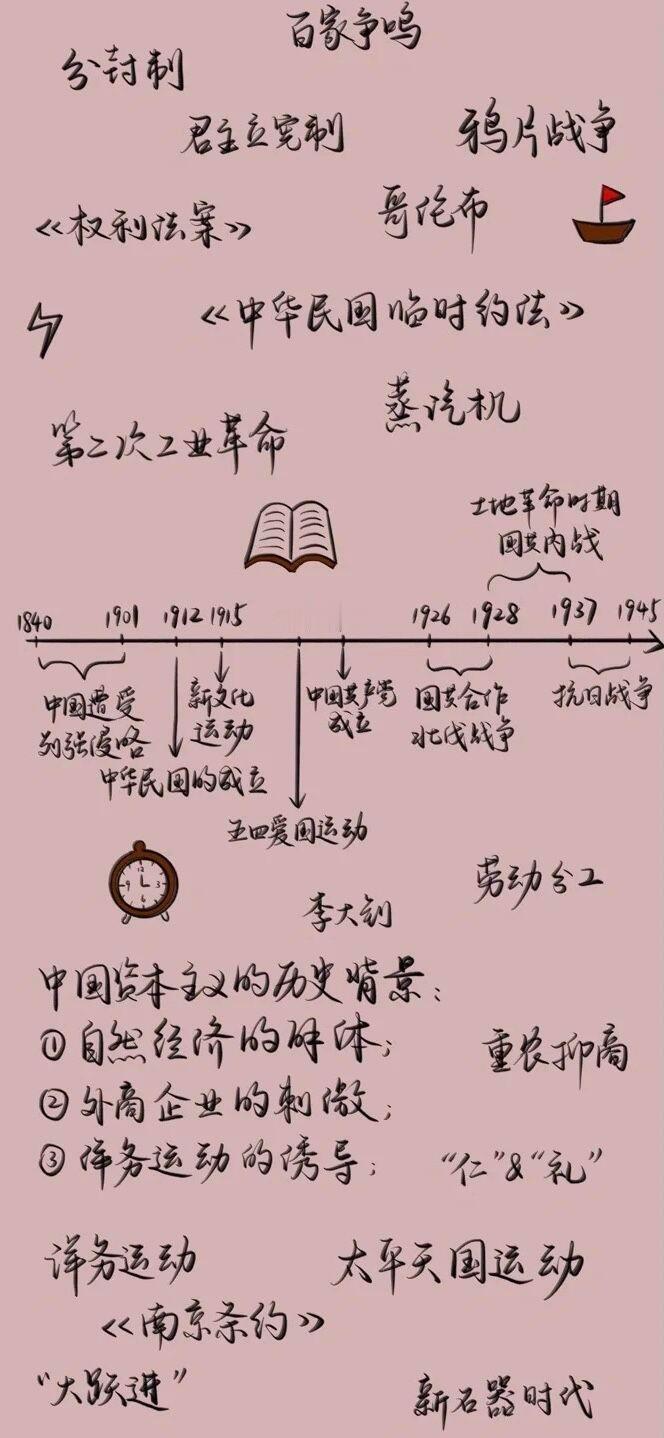 百家争鸣
分封制
君主立宪制
鸦片战争
《权利法案》
哥伦布
《中华民国临时约法》
蒸汽机
第二次工业革命
土地革命时期
国共内战
1840 1901 1912 1915 1926 1928 1937 1945
中国遭受
列强侵略
中华民国的成立
新文化
运动
五四爱国运动
中国共产党
成立
国共合作
北伐战争
抗日战争
12
3
6
9
劳动分工
李大钊
中国资本主义的历史背景：
①自然经济的解体；
重农抑商
②外商企业的刺激；
③洋务运动的诱导；
“仁”&“礼”
洋务运动
太平天国运动
《南京条约》
“大跃进”
新石器时代